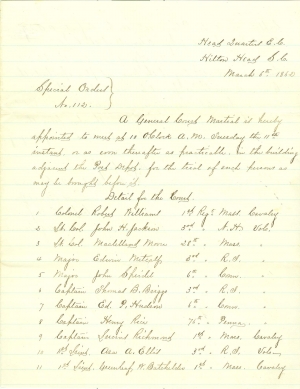 Head Quarters E.C.
Hilton Head S.C.
March 8th 1862
Special Orders }
No. 112. }
A General Court Martial is hereby
appointed to meet at 10 O'Clock A.M. Tuesday the 11th
instant or as soon thereafter as practicable in the building
adjacent the Post Depot. for the trial of such persons as
may be brought before it.
Detail for the Court.
1 Colonel Robert Williams 1st Regt Mass Cavalry
2 Lt. Col. John H. Jackson 3rd " N.H. Vols.
3 Lt Col. Maclelland Moore 28th " Mass. "
4 Major Edwin Metcalf 3rd " R.I. "
5 Major John Speidel 6th " Conn. "
6 Captain Thomas B. Briggs 3rd " R.I. "
7 Captain Ed. P. Hudson 6th " Conn. "
8 Captain Henry 76th " Penna. "
9 Captain Lucius Richmond 1st " Mass. Cavalry
10 1st Lieut. A. Ellis 3rd " R.I. Vols.
11 1st Lieut. Greenleaf W. Batchelder 1st " Mass. Cavalry